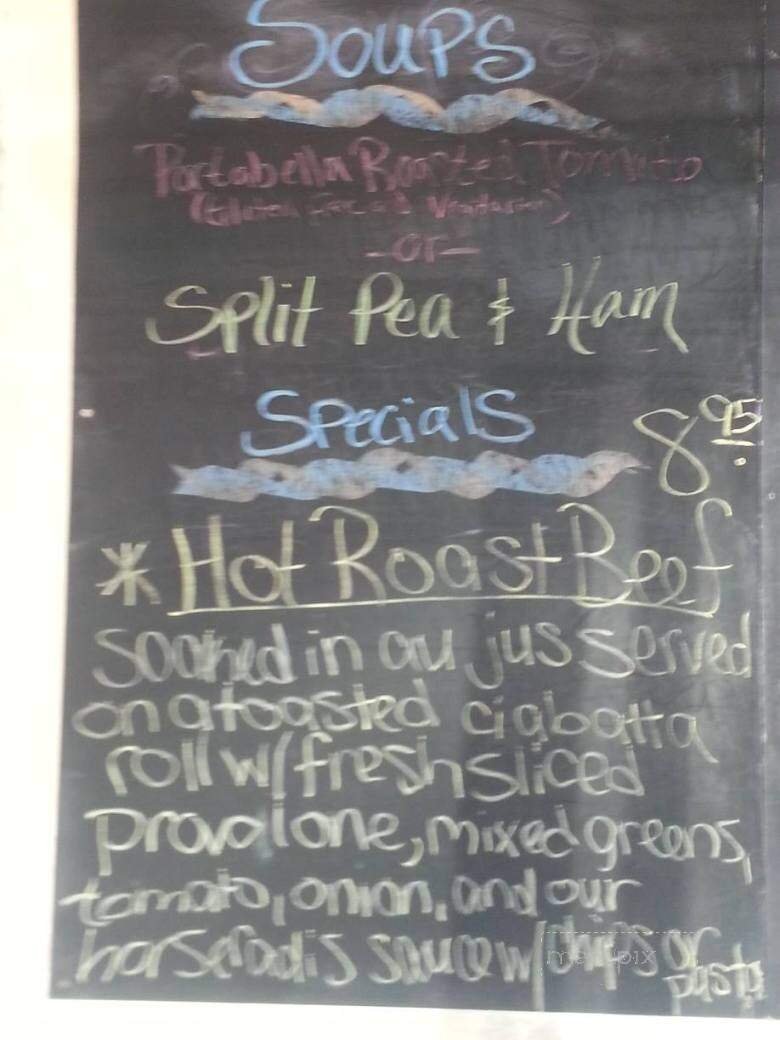 Soups
Portabella Roasted Tomato
(Gluten Free and Vegetarian)
-or-
Split Pea & Ham
Specials
8.95
* Hot Roast Beef
Soaked in au jus served
on a toasted ciabatta
roll w/ fresh sliced
provolone, mixed greens,
tomato, onion, and our
horseradis sauce w/ chips or
pasta
menupix